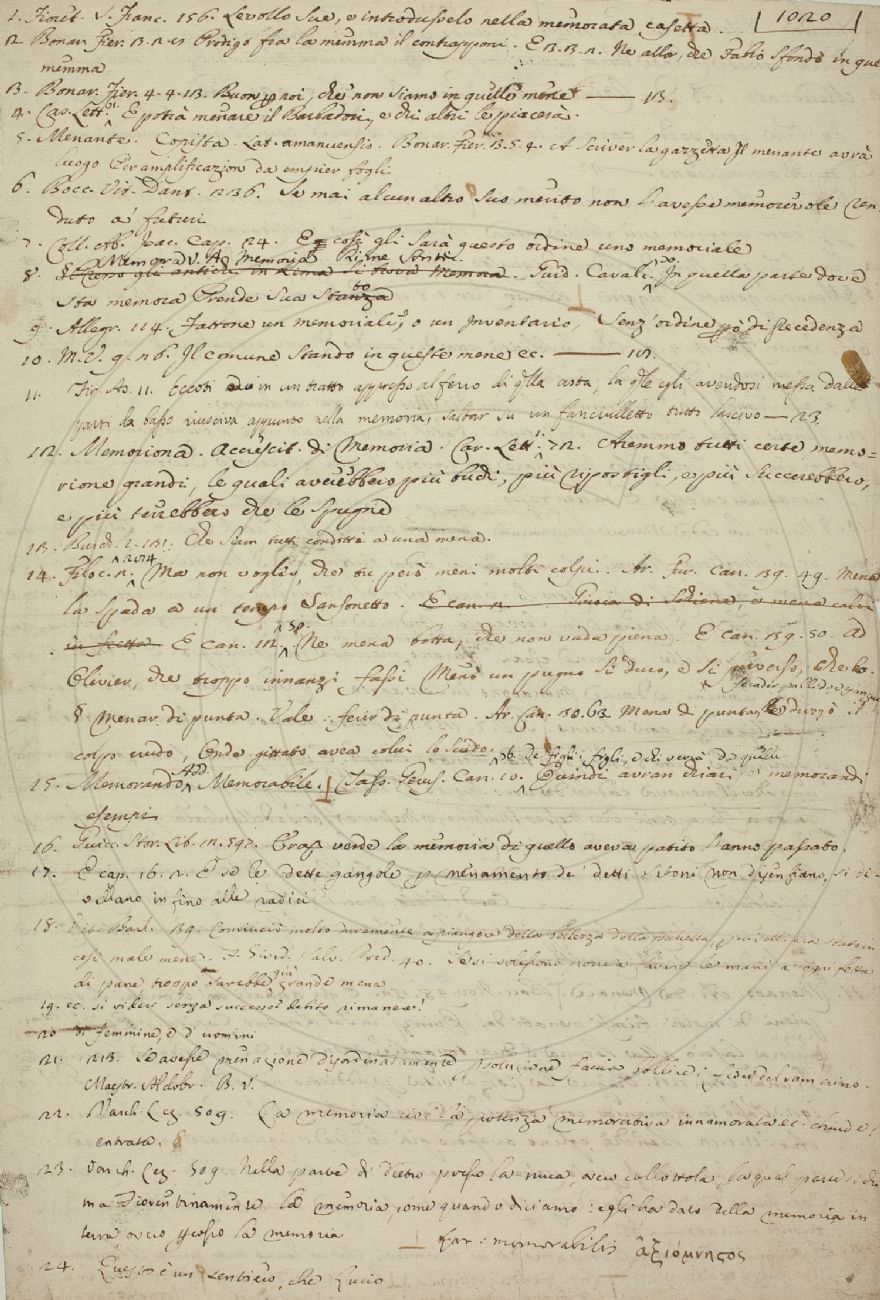 1020
1. Fioret. S. Franc. 156. Levollo sue, e introdusselo nella memorata casetta.
2. Bonar. Fier. Prodigo fra la mumma il contrapponi. E Ne alla, che Fabio sfondò in que
mumma
13. Bonar. Fier. 4. 4. 13. Buon p noi, che non siamo in quelle mene — 13.
4. Car. Lett. E potrà menare il Barbadori, e chi altri le piacerà.
5. Menante. Copista. Lat. amanuensis. Bonar. Fier. 13. 5. 4. A scriver la gazzetta Il menante avrà
luogo Per amplificazion da empier fogli
6. Bocc. Vit. Dant. 236. Se mai alcun altro suo merito non l'avesse memorevole ren
duto a' futuri
7. Coll. Ab. Isac. Cap. 24. E così gli sarà questo ordine uno memoriale
Memora V. A. Memoria Rime
8. gli antichi in Rima si trova Memora. Guid. Caval. In quella parte dove
Sta memora Prende suo stato
9. Allegr. 114. Fattone un memoriale, o un Inventario, Senz'ordine però di precedenza
10. M. V. 9. 26. Il comune stando in queste mene ec. —
11. Fir. As. 11. Eccoti in un tratto appresso al ferro di qlla asta, la qle egli avendosi messa dalle
parti da basso riusciva appunto nella memoria, saltar su un fanciulletto tutto lascivo — 23.
12. Memoriona. Accrescit. di Memoria. Car. Lett. 72. Aremmo tutti certe memo=
rione grandi, le quali averebbero più buchi, più ripostigli, e più succerebbero,
e più terrebbero che le spugne
13. Burch. 2. Che sian tutti condotti a una mena.
14. Filoc. 2. Ma non voglio, che tu però meni molti colpi. Ar. Fur. Can. 39. 49. Mena
la spada a un tempo Sansonetto. E can. mena calci
in fretta. E can. 12. 50. Ne mena botta, che non vada piena. E can. 39. 50. Ad
Olivier, che troppo innanzi fassi Menò un pugno sì duro, e sì perverso, che lo
§. Menar di punta. Vale: ferir di punta. Ar. Can. 30. 62. Mena di punta, e drizzò il
colpo crudo, Onde gittato avea colui lo scudo.
15. Memorando Add. Memorabile. Tass. Gerus. Can. 10. De' figli i figli, e chi verrà da quelli Quindi avran chiari, e memorandi
esempi
16. Guicc. Stor. Lib. 12. 597. Eras verde la memoria di quello aveva patito l'anno passato.
17. E cap. 16. 2. E se le dette gangole p menamento de' detti non disenfiano, si di
vellano infino alle radici
18. Vit. Barl. 39. Cominciò molto duramente a piangere della follezza della pulcella
così male mene. F. Giord. Salv. Pred. 40. Se si volessono poneva lavare le mani a ogni fetta
di pane troppo sarebbe già grande mena
19. ec. si videro senza successo detto rimanere!
20 di femmine, e d'uomini
21. 213. Se avesse menazione disordinatamente polluzione faccia bollire i fiori del ramerino.
Maestr. Aldobr. B. V.
22. Varch. Lez. 509. La memoria cioè la potenza memorativa innamorata ec. chiude l'
entrata.
23. Varch. Lez. 509. Nella parte di dietro presso la nuca, ovvero collottola, la qual parte si chia
ma Fiorentinamente la memoria, come quando diciamo: egli ha dato della memoria in
terra ovvero pcosso la memoria
far: memorabilis ἀξιόμνηςος
24. Questo è un sentiero, che Lucio